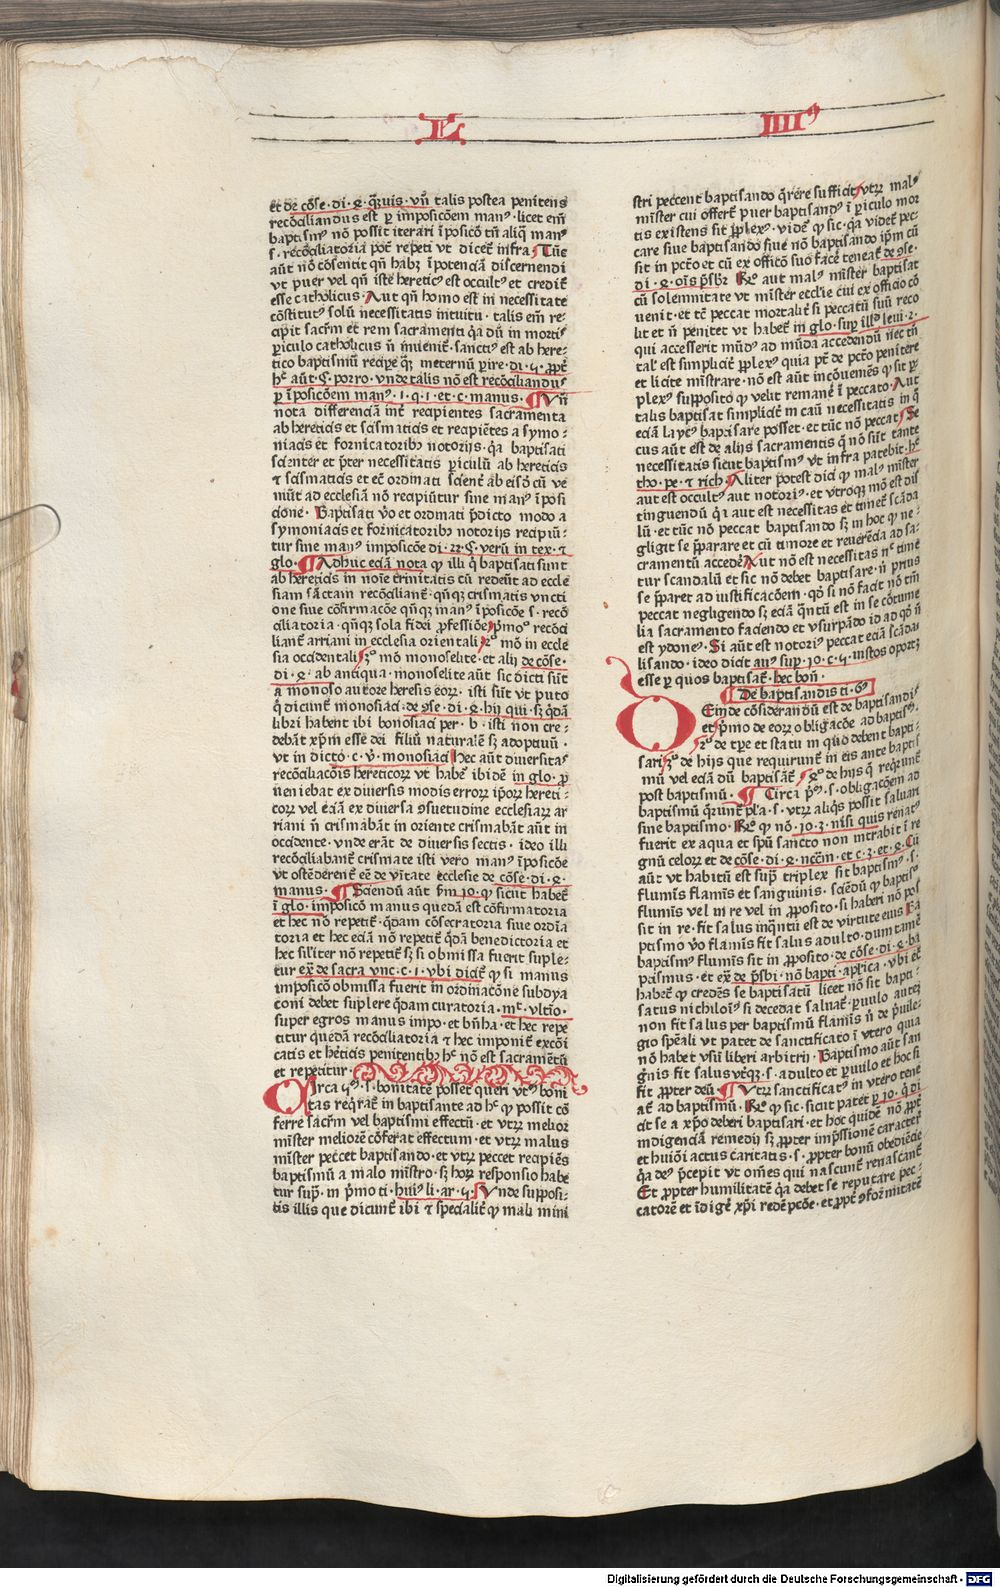 L IIIIꝰ
et dr̄ cōſe·di·ꝗ·q̄ꝫuis·vn̄ talis poſtea penitens
recōciliandus eſt ꝑ impoſicōem manꝰ·licet em̄
baptiſmꝰ nō poſſit iterari īpoſicō tn̄ aliq̄ manꝰ
ſ·recōciliatoria pōt repeti vt dicet᷑ infra Tūc
aūt nō cōſentit qn̄ habꝫ īpotenciā diſcernendi
vt puer vel qn̄ iſte hereticꝰ eſt occultꝰ et credit᷑
eſſe catholicus·Aut qn̄ homo eſt in neceſſitate
cōſtitutꝰ ſolū neceſſitatis intuitu·talis em̄ re⸗
cipit ſacrm̄ et rem ſacramenti q̄a dū in mortiſ
ꝑiculo catholicus n̄ īuenit᷑·ſanctiꝰ eſt ab here⸗
tico baptiſmū recipe᷑ qꝫ met᷑num ꝑire·di·ꝗ·ꝓpt᷑
hᷓ aūt·ꝯ·porro·vnde talis nō eſt recōciliandus
ꝑ īpoſicōem manꝰ·ı·q·ı·et·c·manus· Vn̄
nota differenciā int᷑ recipientes ſacramenta
ab hereticis et ſciſmaticis et recipiētes a ſymo⸗
niacis et fornicatoribꝰ notorijs·q̄a baptiſati
ſciēnter et p̄ter neceſſitatis ꝑiculū ab hereticis
⁊ ſciſmaticis et ec̄ ordinati ſcient᷑ ab eiſdē cū ve
niūt ad eccleſiā nō recipiūtur ſine manꝰ īpoſi
cione· Baptiſati v̄o et ordinati p̄dicto modo a
ſymoniacis et fornicatoribꝰ notorijs recipiū⸗
tur ſine manꝰ impoſicōe di·22·ꝯ·verū in tex·⁊
glo· Adhuc eciā nota ꝙ illi q̄ baptiſati ſunt
ab hereticis in noīe trinitatis cū redeūt ad eccle
ſiam ſāctam recōciliant᷑·qn̄qꝫ criſmatis vncti
one ſiue cōfirmacōe qn̄qꝫ manꝰ īpoſicōe ſ·recō
ciliatoria·qn̄qꝫ ſola fidei ꝓfeſſiōe p̄mo recōci
liant᷑ arriani in eccleſia orientali 2º mō in eccle
ſia occidentali 3º mō monoſelite·et alij de cōſe·
di·ꝗ·ab antiqua·monoſelite aūt ſic dicti ſūt
a monoſo autore hereſis eoꝝ· iſti ſūt vt puto
q̄ dicunt᷑ monoſiaci·de 9ſe·di·ꝗ·hij qui·ſꝫ q̄dā
libri habent ibi bonoſiaci per·b·iſti non cre⸗
debāt xp̄m eſſe dei filiū naturalē ſꝫ adoptiuū·
vt in dicto·c·v̄·monoſiaci hec aūt diuerſitaſ
recōciliacōis hereticoꝝ vt habet᷑ ibidē in glo·ꝓ
ueniebat ex diuerſis modis erroꝝ ipoꝝ hereti⸗
coꝝ vel eciā ex diuerſa 9ſuetudine eccleſiaꝝ ar
riani n̄ criſmabāt in oriente criſmabāt aūt in
occidente·vnde erāt de diuerſis ſectis·ideo illi
recōciliabant᷑ criſmate iſti vero manꝰ īpoſicōe
vt oſtēderent᷑ ec̄ de v̄itate eccleſie de cōſe·di·ꝗ·
manus· Sciendū aūt ſm̄ 10·ꝙ ſicut habet᷑
ī glo·impoſicō manus quedā eſt cōfirmatoria
et hec nō repetit᷑·q̄dam cōſecratoria ſiue ordīa
toria et hec eciā nō repetit᷑ q̄dā benedictoria et
hec ſil'iter nō repetit᷑ ſꝫ ſi obmiſſa fuerit ſuple⸗
tur ex᷑ de ſacra vnc·c·ı·vbi dicit᷑ ꝙ ſi manus
impoſicō obmiſſa fuerit in ordinacōne ſubdya
coni debet ſuplere q̄dam curatoria·mᷓ vltīo·
ſuper egros manus impo·et bn̄ha·et hec repe
titur quedā recōciliatoria ⁊ hec imponit᷑ excōi
catis et h᷑eticis penitentibꝫ hᷓ nō eſt ſacramētū
et repetitur
Circa 4ᵘ·ſ·bonitatē poſſet queri vtꝝ boni
tas req̄rat᷑ in baptiſante ad hᷓ ꝙ poſſit cō
ferre ſacrm̄ vel baptiſmi effectū·et vtꝝ melior
mīſter meliorē cōferat effectum·et vtꝝ malus
mīſter peccet baptiſando·et vtꝝ peccet recipiēs
baptiſmū a malo mīſtro·ſꝫ hoꝝ reſponſio habe
tur ſup᷑·in p̄mo ti·huiꝰ li·ar·4· Vnde ſuppoſi⸗
tis illis que dicunt᷑ ibi ⁊ ſpecialit᷑ ꝙ mali mini
ſtri peccent baptiſando q̄rere ſufficit vtꝝ malꝰ
mīſter cui offert᷑ puer baptiſandꝰ ī ꝑiculo mor
tis exiſtens ſit ꝑplexꝰ·videt᷑ ꝙ ſic·q̄a videt᷑ pec⸗
care ſiue baptiſando ſiue nō baptiſando ip̄m cū
ſit in pctō et cū ex officō ſuo facē teneat᷑ de 9ſe·
di·ꝗ·oīs p̄ſbꝫ Rº aut malꝰ mīſter baptiſat
cū ſolemnitate vt mīſter eccl'ie cui ex officio cō
uenit·et tc̄ peccat mortalit᷑ ſi peccatū ſuū reco
lit et n̄ penitet vt habet᷑ in glo·ſup᷑ illd̄ leui·2·
qui acceſſerit mūdꝰ ad mūda accedendū nec tn̄
tal' eſt ſimplicit᷑ ꝑplexꝰ quia pt̄ de pctō penitere
et licite mīſtrare·nō eſt aūt incōueniēs ꝙ ſit ꝑ
plexꝰ ſuppoſito ꝙ velit remanē ī peccato·Aut
talis baptiſat ſimplicit᷑ in caū neceſſitatis in q̄
eciā laycꝰ baptiſare poſſet·et tūc nō peccat Se
cus aūt eſt de alijs ſacramentis q̄ nō ſūt tante
neceſſitatis ſicut baptiſmꝰ vt infra patebit·hᷓ
tho·pe·⁊ rich· Aliter p̄oteſt dici ꝙ malꝰ mīſter
aut eſt occultꝰ aut notoriꝰ·et vtroqꝫ mō eſt diſ
tinguendū q̄ı aut eſt neceſſitas et timet᷑ ſcāda
lū·et tūc nō peccat baptiſando ſꝫ in hoc ꝙ ne⸗
gligit ſe p̄parare et cū timore et reuerēcia ad ſa⸗
cramentū accedē Aut nō eſt neceſſitas nᷓ time
tur ſcandalū et ſic nō debet baptiſare·n̄ prius
ſe p̄paret ad iuſtificacōem·qᷘ ſi nō facit nō tm̄
peccat negligendo ſꝫ eciā q̄ntū eſt in ſe cōtume
lia ſacramento faciendo et vſurpādo id ad qᷘ n̄
eſt ydoneꝰ·Si aūt eſt notoriꝰ peccat eciā ſcāda
liſando·ideo dicit auᵍ ſup᷑·10·c·4·iuſtos oportꝫ
eſſe ꝑ quos baptiſat᷑·hec boñ·
De baptiſandis ti·6ᵘˢ
DEinde cōſiderandū eſt de baptiſandiſ
et p̄mo de eoꝝ obligacōe ad baptiſꝰ·
2º de tꝑe et ſtatu in quō debent bapti⸗
ſari 3º de hijs que requirunt᷑ in eis ante baptiſ
mū vel eciā dū baptiſāt᷑ 4º de hijs q̄ req̄runt᷑
poſt baptiſmū· Circa p̄ᵐ·ſ·obligacōem ad
baptiſmū q̄runt᷑ pl'a·ſ·vtꝝ aliq̄s poſſit ſaluari
ſine baptiſmo·Rº ꝙ nō·10·3·niſi quis renatꝰ
fuerit ex aqua et ſpū ſancto non intrabit ī re
gnū celoꝝ et de cōſe·di·ꝗ·nccm̄·et·c·3·et·ꝗ·Cū
aūt vt habitū eſt ſup᷑ triplex ſit baptiſmꝰ·ſ·
flumīs flamīs et ſanguinis·ſciēdū ꝙ baptiſꝰ
flumīs vel in re vel in ꝓpoſito·ſi haberi nō poſ
ſit in re·fit ſalus inq̄ntū eſt de virtute eius Ba
ptiſmo v̄o flamīs fit ſalus adulto·dum tamē
baptiſmꝰ flumīs ſit in ꝓpoſito·de cōſe·di·ꝗ·ba
ptiſmus·et ex᷑ de p̄ſbi·nō bapti·aplica·vbi ec̄
habet᷑ ꝙ credēs ſe baptiſatū licet nō ſit bapti⸗
ſatus nichiloīꝰ ſi decedat ſaluat᷑·ꝑuulo autē
non fit ſalus per baptiſmū flamīs n̄ de p̄uile⸗
gio ſpēali vt patet de ſanctificato ī vtero quia
nō habet vſū liberi arbitrij·Baptiſmo aūt ſan
ḡnis fit ſalus vt᷑qꝫ·ſ·adulto et ꝑuulo et hoc ſi
fit ꝓpter deū· Vtꝝ ſanctificatꝰ in vtero tene
at᷑ ad baptiſmū·Rº ꝙ ſic·ſicut patet ꝑ 10·q̄ di
cit ſe a xp̄o deberi baptiſari·et hoc quidē nō ꝓpt᷑
indigenciā remedij ſꝫ ꝓpter imp̄ſſionē caracter᷑
et huiōi actus caritatis·ſ·ꝓpter bonū obediēcie
q̄a deꝰ p̄cepit vt om̄es qui naſcunt᷑ renaſcant᷑
Et ꝓpter humilitatē q̄a debet ſe reputare pec⸗
catorē et īdigē xp̄i redēpcōe·et ꝓpt᷑ 9formitatē
Digitalisierung gefördert durch die Deutsche Forschungsgemeinschaft · DFG